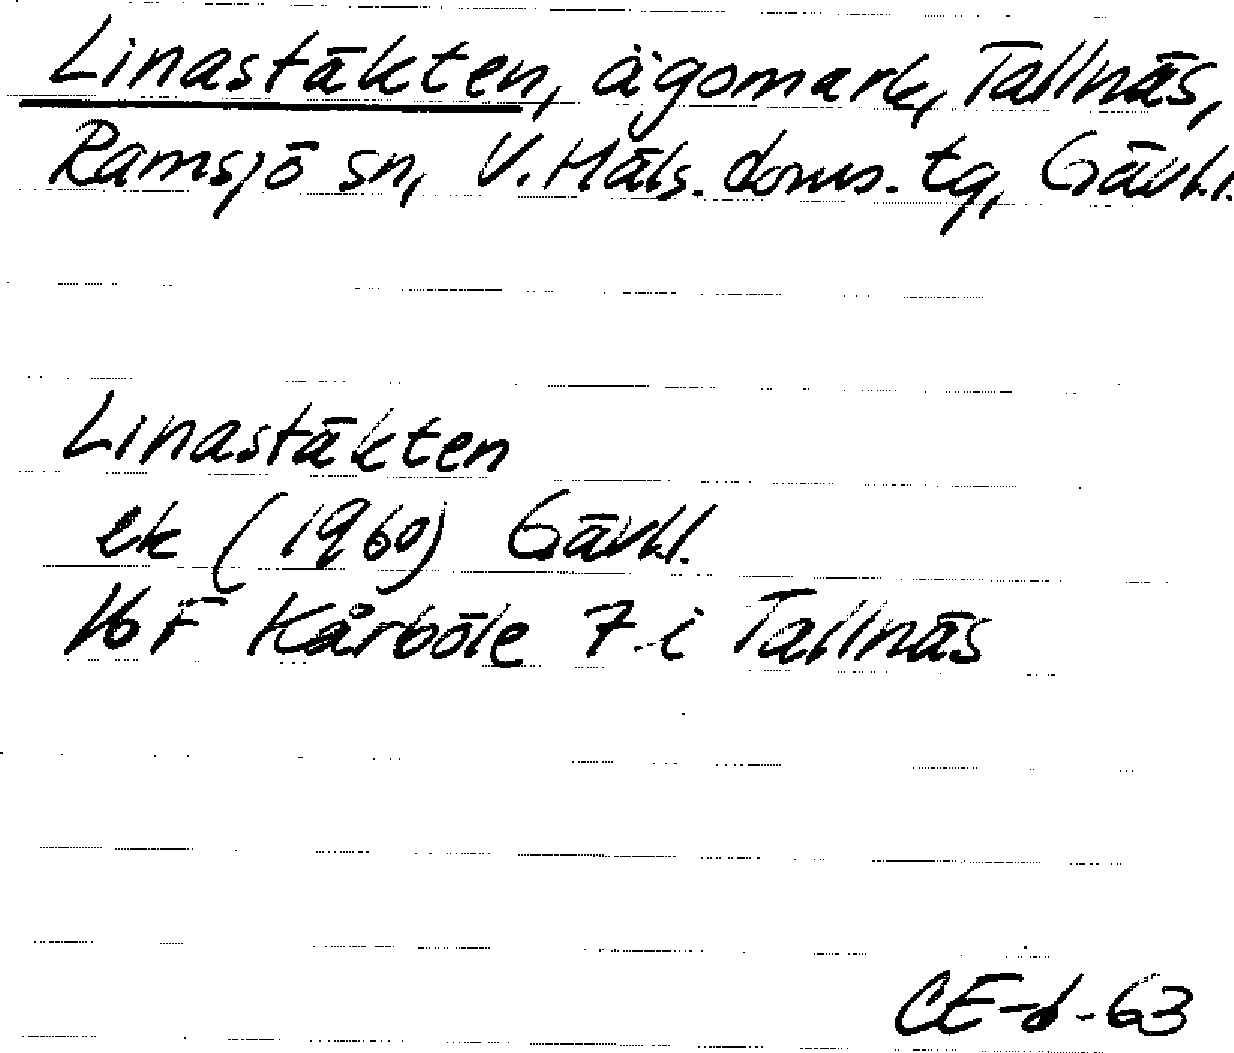 Linastäkten, ägomark, Tallnäs,
Ramsjö sn, V. Häls. doms. tg, Gävl.l.
Linastäkten
ek (1960) Gävl.l.
16 F Kårböle 7 i Tallnäs
CE-d-63